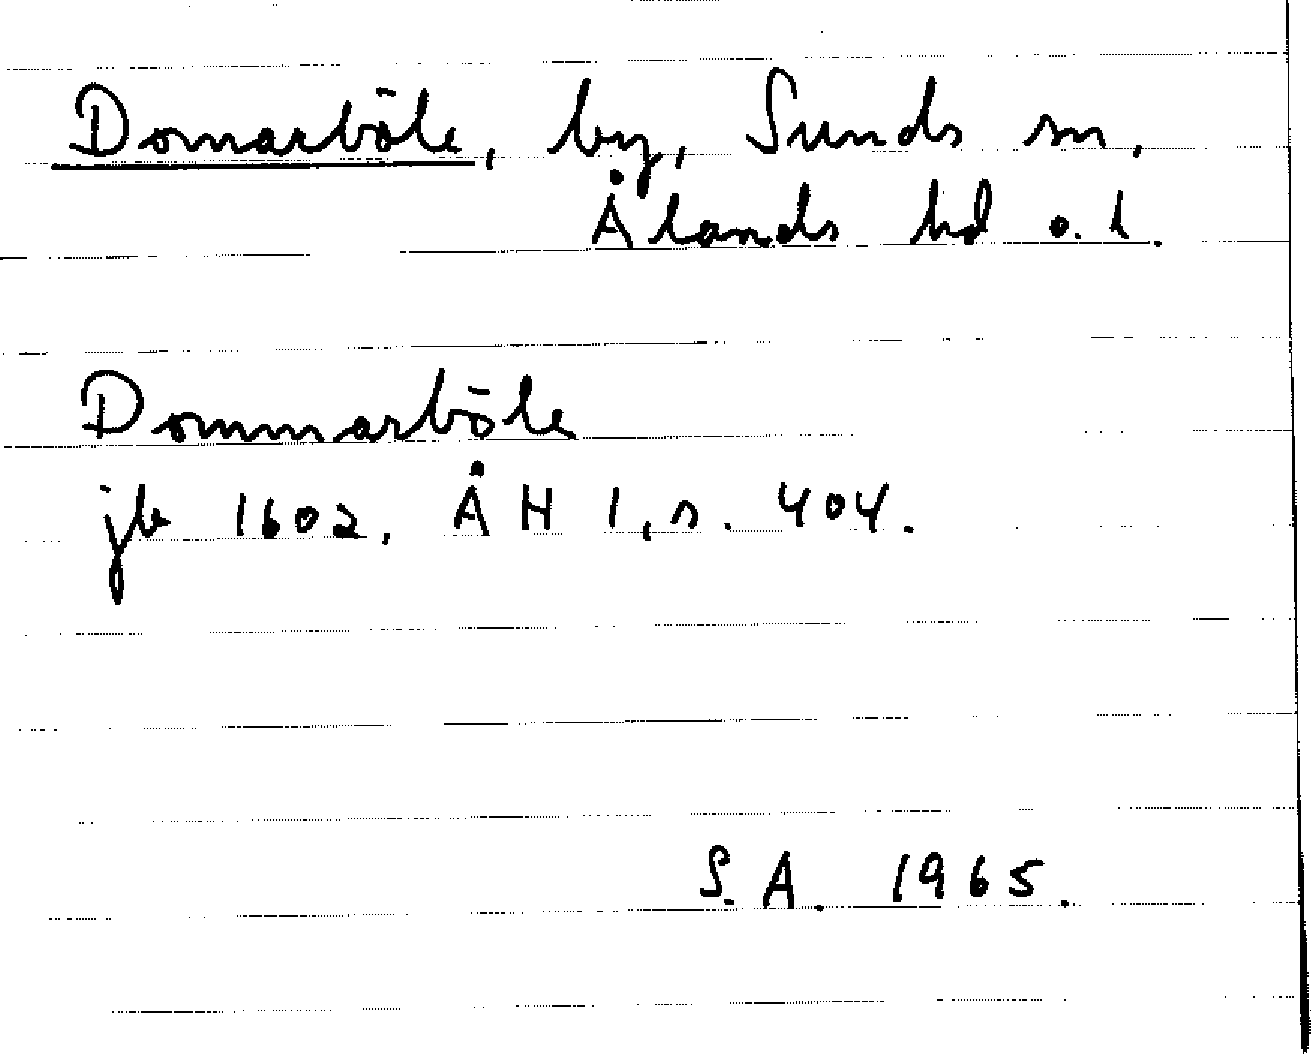 Domarböle, by, Sunds sn,
Ålands hd o. l.
Dommarböle
jb 1602. ÅH 1, s. 404.
S. A. 1965.